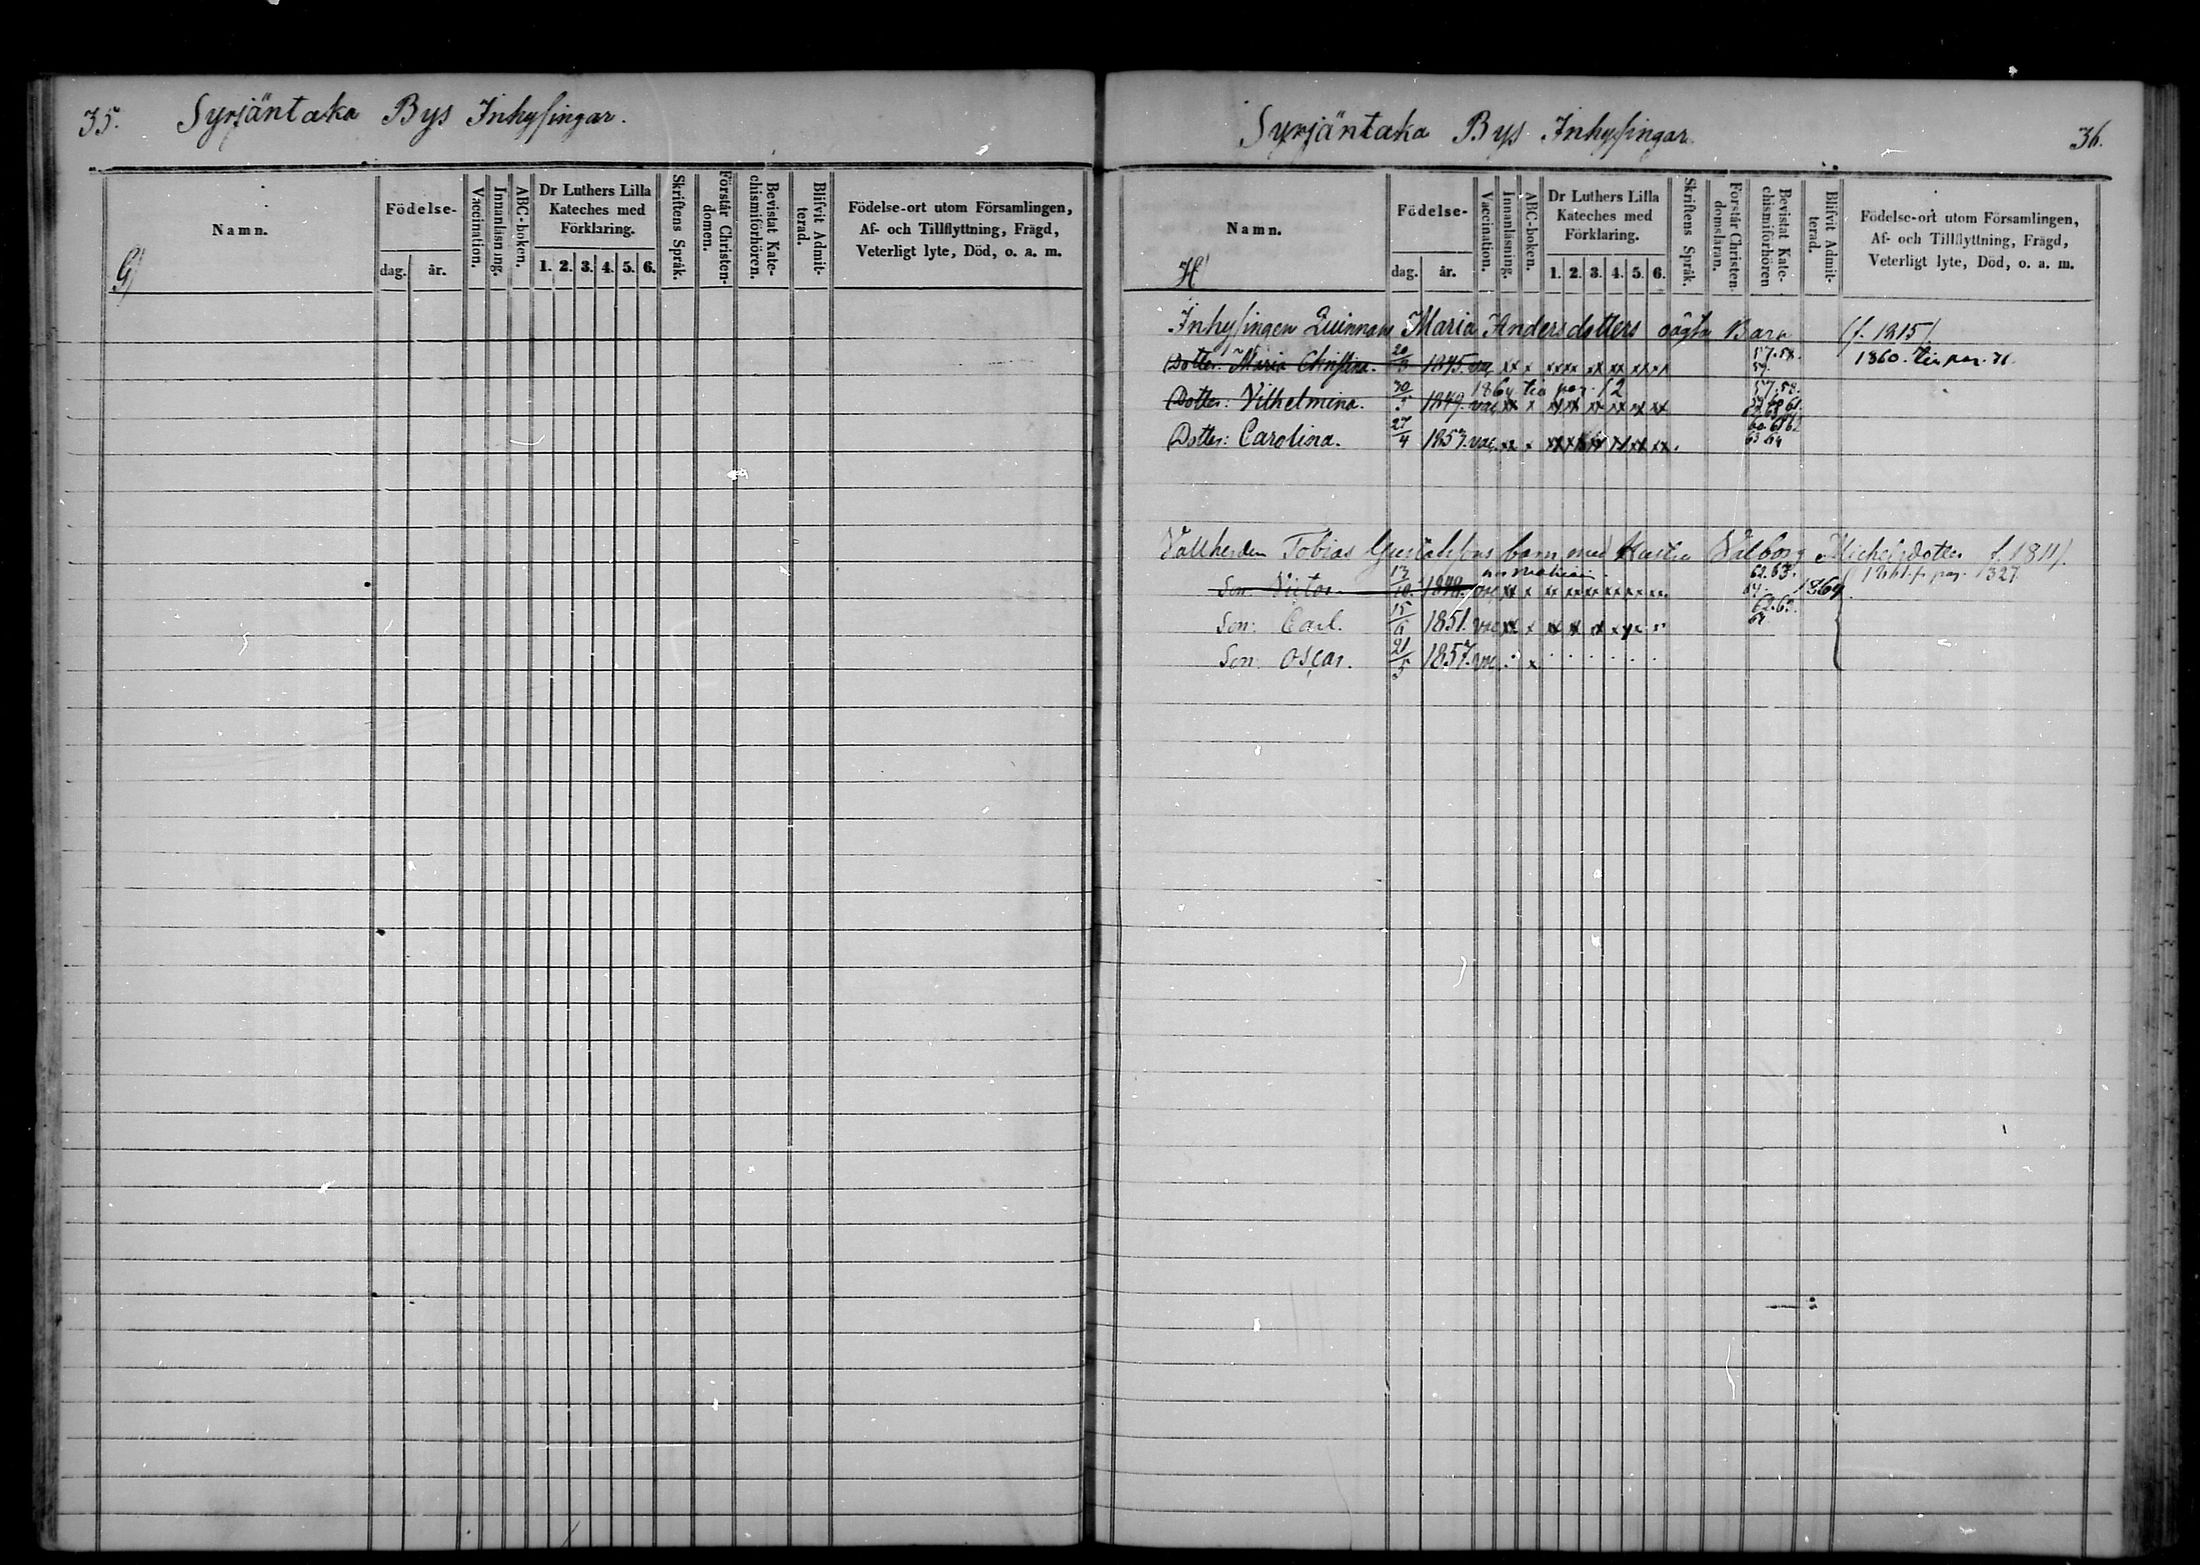 35. Syrjäntaka Bys Inhysingar.
Namn.
G)
Födelse-
dag. år.
Vaccination.
Innanläsning.
ABC-boken.
Dr Luthers Lilla
Kateches med
Förklaring.
1. 2. 3. 4. 5. 6.
Skriftens Språk.
Förstår Christen-
domen.
Bevistat Kate-
chismiförhören.
Blifvit Admit-
terad.
Födelse-ort utom Församlingen,
Af- och Tillflyttning, Frägd,
Veterligt lyte, Död, o. a. m.
Syrjäntaka Bys Inhysingar. 36.
Namn.
H
Födelse-
dag. år.
Vaccination.
Innanläsning.
ABC-boken.
Dr Luthers Lilla
Kateches med
Förklaring.
1. 2. 3. 4. 5. 6.
Skriftens Språk.
Förstår Christen-
domsläran.
Bevistat Kate-
chismiförhören
Blifvit Admit-
terad.
Födelse-ort utom Församlingen,
Af- och Tillflyttning, Frägd,
Veterligt lyte, Död, o. a. m.
Inhysingen Quinnans Maria Andersdotters oägta Barn (f. 1815).
Dotter: Maria Christina. 1845. vac xx x xx xx xx xx xx xx 57. 58. 59. 1860. till pag.
1864 till pag. 12
Dotter: Vilhelmina. 30/5 1849. vac xx x xx xx xx xx xx xx 57. 58.
Dotter: Carolina. 27/4 1853. vac. xx x xx xx xx xx xx xx. 63 64
Vallherden Tobias Gustafsons barn med Hustru Valborg Michelsdotter f. 1811).
Son: Victor. 13/10. 1848. vac xx x xx xx xx xx xx xx 62. 63. 64. 1864 1861. fr. pag. 1327.
Son: Carl. 15/6 1851. vac xx x xx xx x 62. 63. 64
Son: Oscar. 21/5 1857. vac x